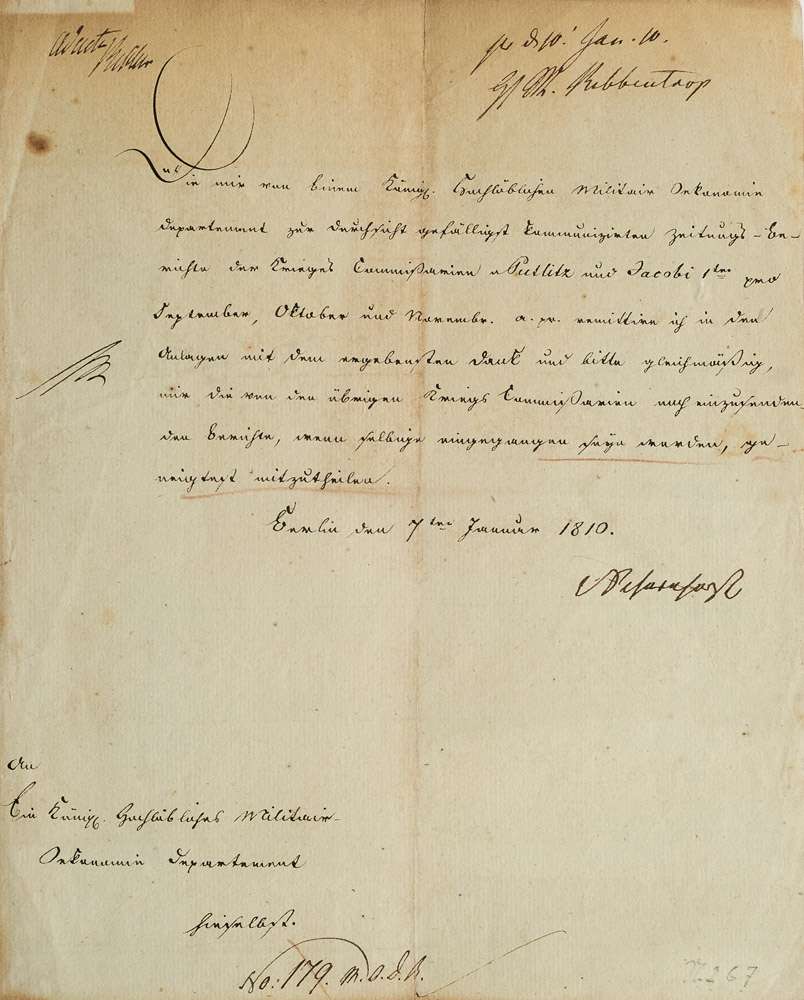 pr. d. 10. Jan. 10.
Ribbentrop
Die mir von Einem Königl. Hochlöblichen Militair Oekonomie
Departement zur Durchsicht gefälligst kommunizirten Zeitungs-Be-
richte der Krieges Commißarien v Putlitz und Jacobi 1ten pro
September, Oktober und Novembr. a. pr. remittire ich in den
Anlagen mit dem ergebensten Dank und bitte gleichmäßig,
mir die von den übrigen Kriegs Commißarien noch einzusenden-
den Berichte, wenn selbige eingegangen seyn werden, ge-
neigtest mitzutheilen.
Berlin den 7ten Januar 1810.
Scharnhorst
An
Ein Königl. Hochlöbliches Militair-
Oekonomie Departement
hieselbst.
No: 179. M. O. D. R.
67